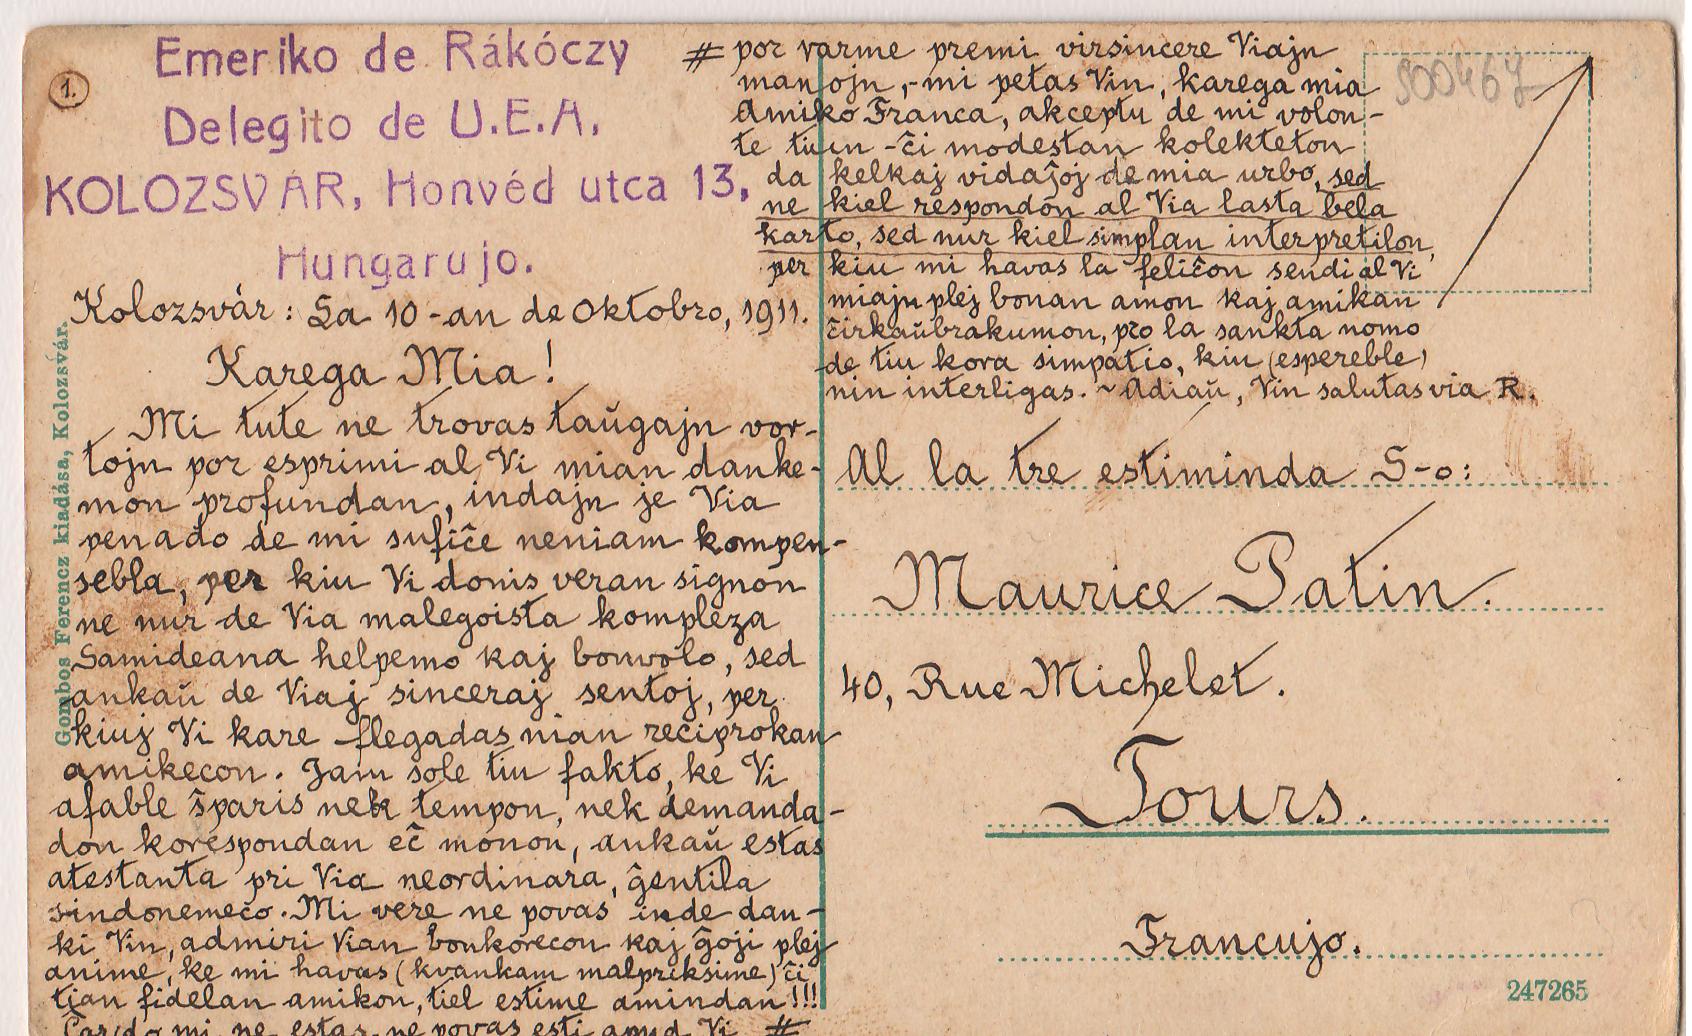 Emeriko de Rákóczy
Delegito de U.E.A.
KOLOZSVÁR, Honvéd utca 13,
Hungarujo.
1.
Kolozsvár: La 10-an de Oktobro, 1911.
Karega Mia!
Mi tute ne trovas taŭgajn vor-
tojn por esprimi al Vi mian danke-
mon profundan, indajn je Via
penado de mi sufiĉe neniam kompen-
sebla, per kiu Vi donis veran signon
ne nur de Via malegoista kompleza
Samideana helpemo kaj bonvolo, sed
ankaŭ de Viaj sinceraj sentoj, per
kiuj Vi kare flegadas nian reciprokan
amikecon. Jam sole tiu fakto, ke Vi
afable ŝparis nek tempon, nek demanda-
don korespondan eĉ monon, ankaŭ estas
atestanta pri Via neordinara, ĝentila
sindonemeco. Mi vere ne povas inde dan-
ki Vin, admiri Vian bonkorecon kaj ĝoji plej
anime, ke mi havas (kvankam malpriksime) ĉi
tian fidelan amikon, tiel estime amindan!!!
Ĉar do mi ne estas, ne povas esti apud Vi #
# por varme premi virsincere Viajn
manojn,-mi petas Vin, karega mia
Amiko Franca, akceptu de mi volon-
te tiun-ĉi modestan kolekteton
da kelkaj vidaĵoj de mia urbo, sed
ne kiel respondon al Via lasta bela
karto, sed nur kiel simplan interpretilon,
per kiu mi havas la feliĉon sendi al Vi
miajn plej bonan amon kaj amikan
ĉirkaŭbrakumon, pro la sankta nomo
de tiu kora simpatio, kiu (espereble)
nin interligas. ~ Adiaŭ, Vin salutas via R.
900467
Al la tre estiminda S-o:
Maurice Patin.
40, Rue Michelet.
Tours.
Francujo.
247265
Gombos Ferencz kiadása, Kolozsvár.